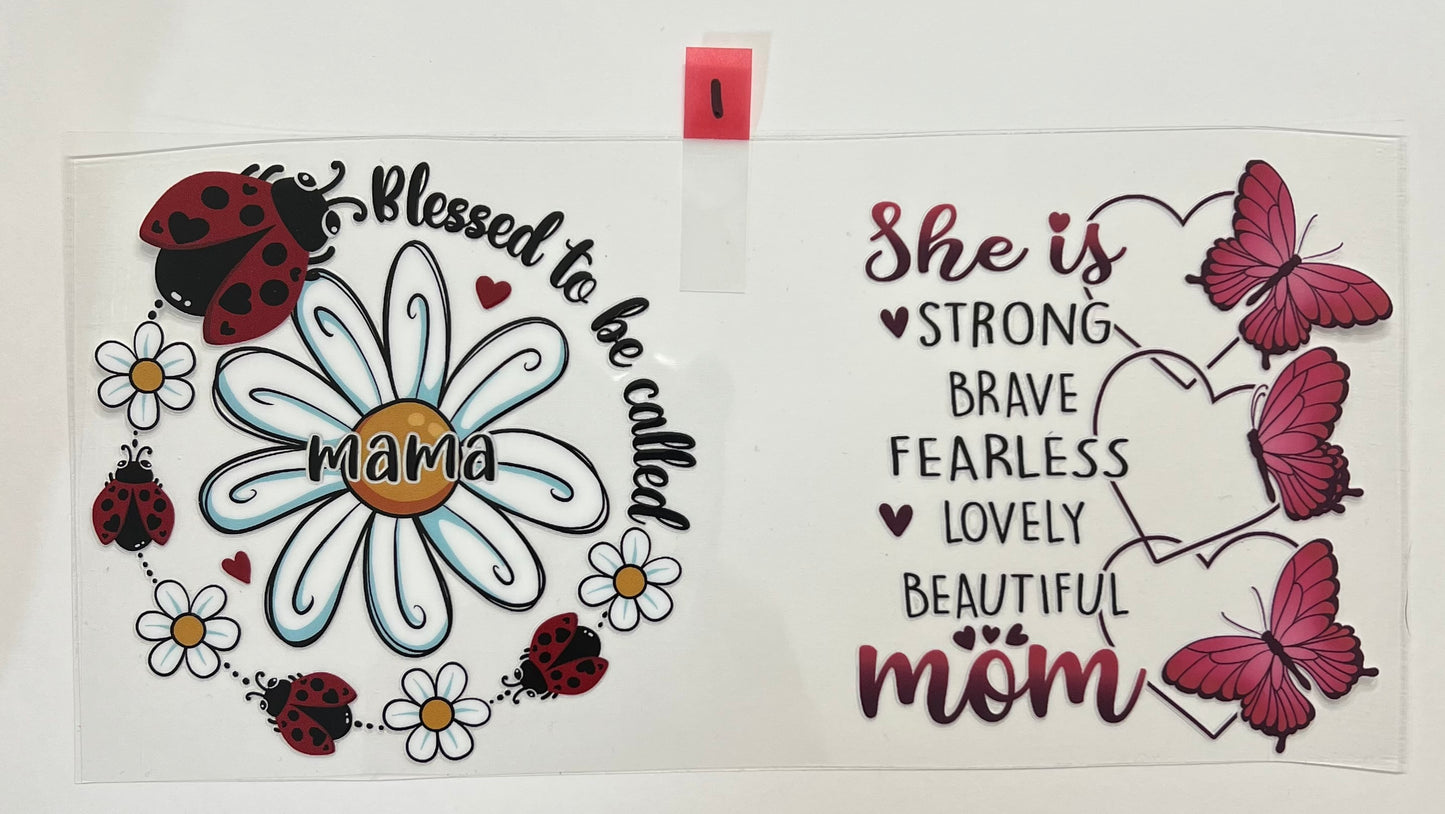 1
Blessed to be called
mama
She is
STRONG
BRAVE
FEARLESS
LOVELY
BEAUTIFUL
mom